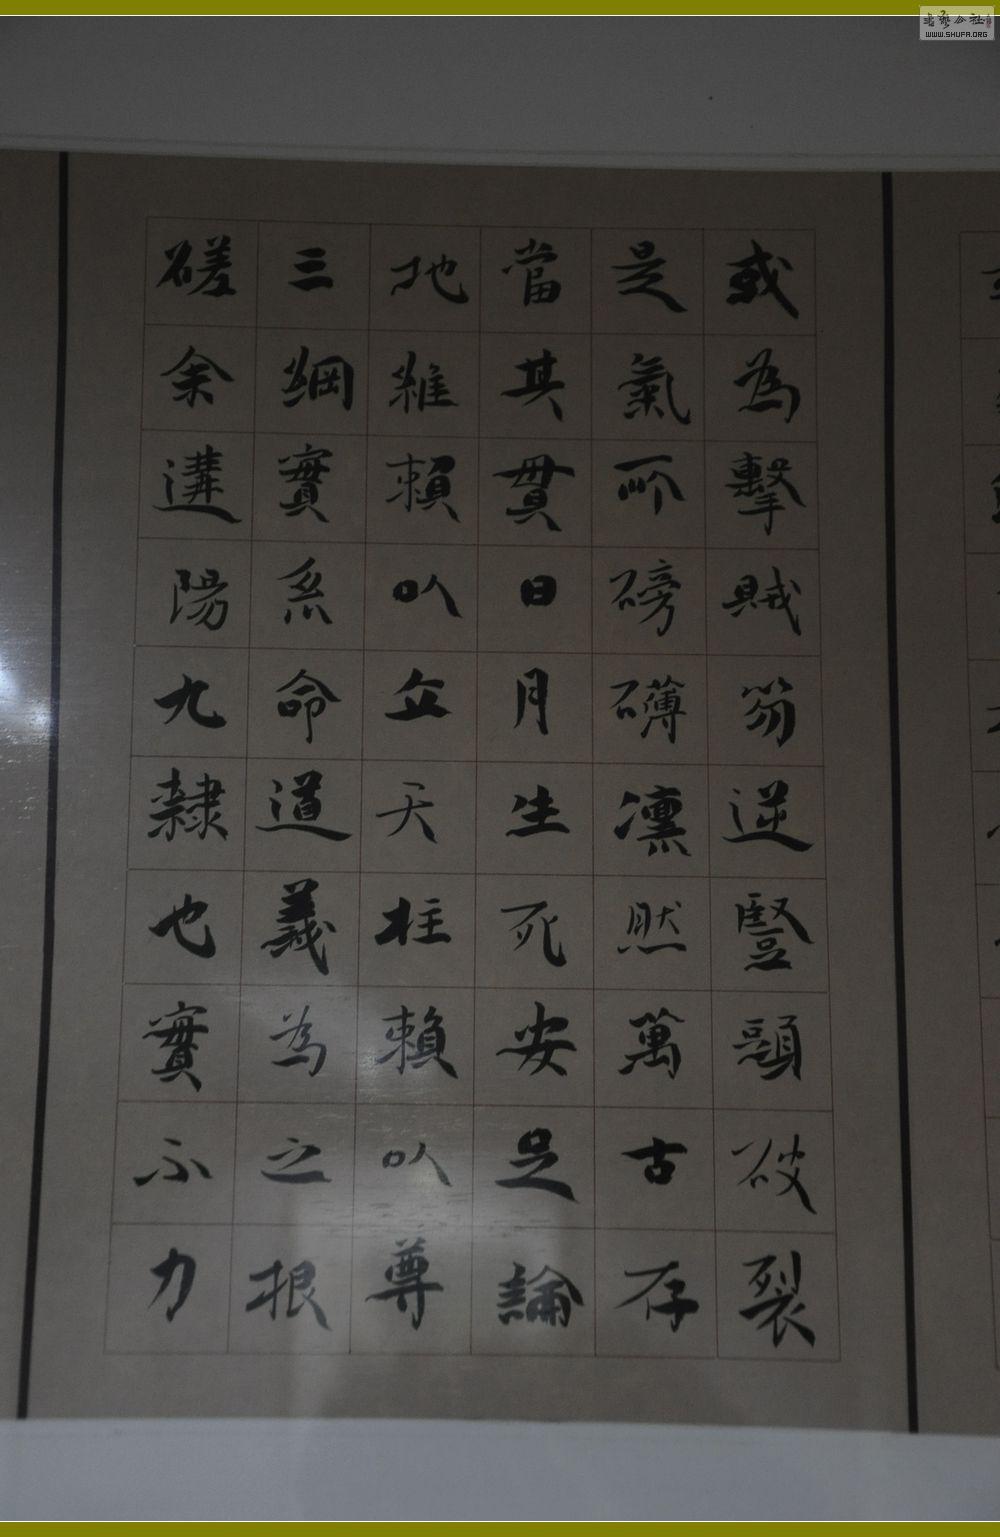 或為擊賊笏逆豎頭破裂
是氣所磅礴凛然萬古存
當其貫日月生死安足論
地維賴以立天柱賴以尊
三綱實系命道義為之根
磋余遘陽九隸也實不力
WWW.SHUFA.ORG